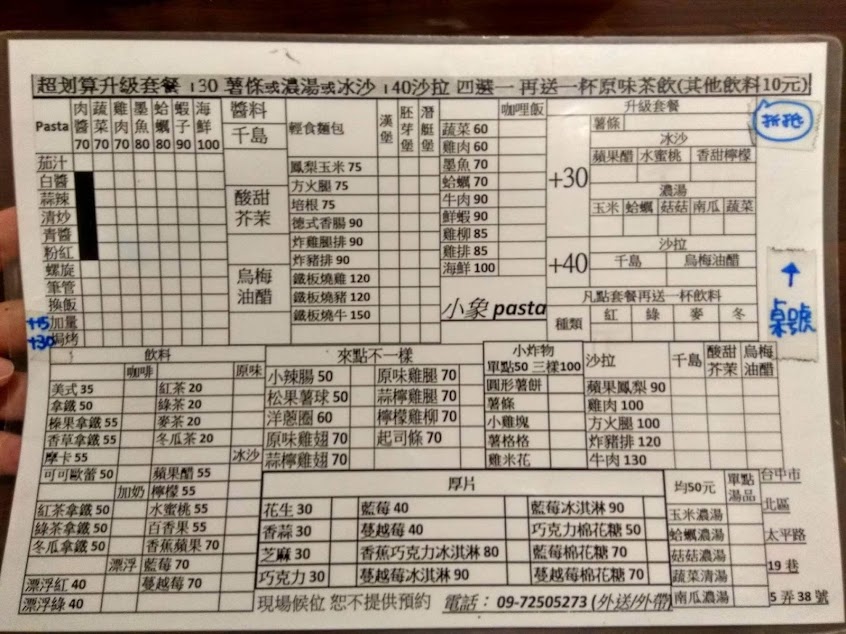 超划算升級套餐 +30 薯條或濃湯或冰沙 +40沙拉 四選一 再送一杯原味茶飲(其他飲料10元)
拼拼
Pasta 肉醬70 蔬菜70 雞肉70 墨魚80 蛤蠣80 蝦子90 海鮮100
茄汁
白醬
蒜辣
清炒
青醬
粉紅
螺旋
筆管
換飯
+15 加量
+30 焗烤
醬料
千島
酸甜芥茉
烏梅油醋
輕食麵包 漢堡 胚芽堡 潛艇堡
鳳梨玉米 75
方火腿 75
培根 75
德式香腸 90
炸雞腿排 90
炸豬排 90
鐵板燒雞 120
鐵板燒豬 120
鐵板燒牛 150
咖哩飯
蔬菜 60
雞肉 60
墨魚 70
蛤蠣 70
牛肉 90
鮮蝦 90
雞柳 85
雞排 85
海鮮 100
小象 pasta
升級套餐
+30
薯條
冰沙
蘋果醋 水蜜桃 香甜檸檬
濃湯
玉米 蛤蠣 菇菇 南瓜 蔬菜
+40
沙拉
千島 烏梅油醋
凡點套餐再送一杯飲料
種類 紅 綠 麥 冬
↑
桌號
飲料
咖啡 原味
美式 35 紅茶 20
拿鐵 50 綠茶 20
榛果拿鐵 55 麥茶 20
香草拿鐵 55 冬瓜茶 20
摩卡 55 冰沙
可可歐蕾 50 蘋果醋 55
加奶 檸檬 55
紅茶拿鐵 50 水蜜桃 55
綠茶拿鐵 50 百香果 55
冬瓜拿鐵 50 香蕉蘋果 70
漂浮 藍莓 70
漂浮紅 40 蔓越莓 70
漂浮綠 40
來點不一樣
小辣腸 50 原味雞腿 70
松果薯球 50 蒜檸雞腿 70
洋蔥圈 60 檸檬雞柳 70
原味雞翅 70 起司條 70
蒜檸雞翅 70
小炸物
單點50 三樣100
圓形薯餅
薯條
小雞塊
薯格格
雞米花
沙拉 千島 酸甜芥茉 烏梅油醋
蘋果鳳梨 90
雞肉 100
方火腿 100
炸豬排 120
牛肉 130
厚片
花生 30 藍莓 40 藍莓冰淇淋 90
香蒜 30 蔓越莓 40 巧克力棉花糖 50
芝麻 30 香蕉巧克力冰淇淋 80 藍莓棉花糖 70
巧克力 30 蔓越莓冰淇淋 90 蔓越莓棉花糖 70
均50元 單點湯品
玉米濃湯
蛤蠣濃湯
菇菇濃湯
蔬菜清湯
南瓜濃湯
台中市
北區
太平路
19 巷
5 弄 38 號
現場候位 恕不提供預約 電話：09-72505273 (外送/外帶)